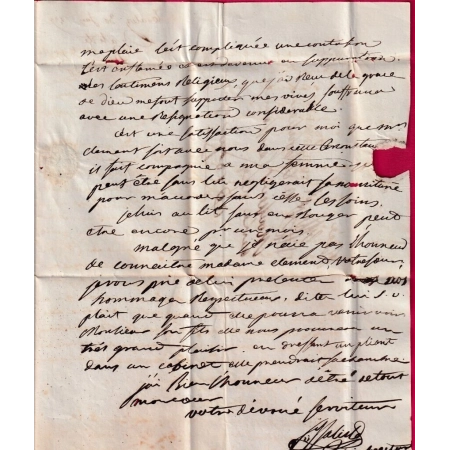 ma plaie s'est compliquée une contusion
s'est enflamée et est devenue en suppuration
des sentimens religieux, que j'ai reçu de la grace
de dieu me font supporter mes vives souffrances
avec une resignation considerable.
C'est une satisfaction pour moi que Mr
clement soit avec nous dans cette circonstance
il fait compagnie a ma femme
peut être sans lui negligerait sa nouriture
pour m'accorder sans cesse les soins.
Je suis au lit sans en bouger peut
être encore pr un mois.
malgré que je n'aie pas l'honneur
de connaitre madame clement, votre soeur
je vous prie de lui presenter mes
hommages respectueux, dite lui s.v.
plait que quand elle pourra venir voir
Monsieur son fils elle nous procurera un
très grand plaisir. en dressant un plient
dans un cabinet elle prendrait sa chambre
j'ai Bien l'honneur d'être de tout
mon cœur
votre dévoué serviteur